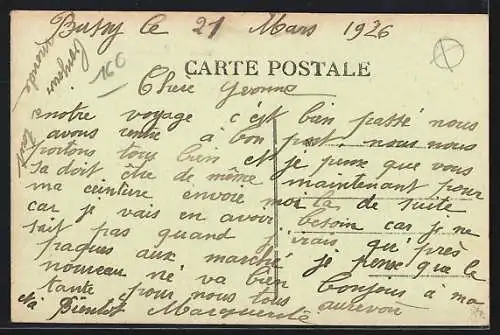 Bussy le 21 Mars 1926
CARTE POSTALE
16€
Chère Yvonne
notre voyage c'est bien passé nous
avons à bon port nous nous
portons tous bien et je pense que vous
sa doit être de même maintenant pour
ma ceinture envoie moi la de suite
car je vais en avoir besoin car je ne
sait pas quand j'irais qu'près
paques au marché je pense que le
nouveau né va bien bonjous à ma
tante pour nous tous aurevoir
A Bientôt Marguerite
bonjour
tout